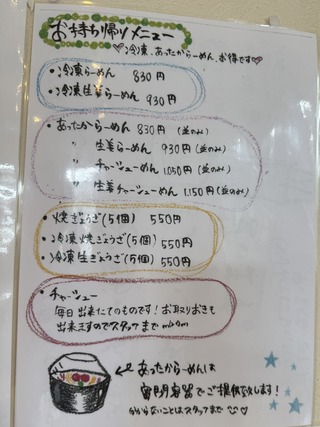 お持ち帰りメニュー
♡冷凍、あったからーめん、お得です♡
・冷凍らーめん 830円
・冷凍生姜らーめん 930円
・あったからーめん 830円 (並のみ)
〃 生姜らーめん 930円 (並のみ)
〃 チャーシューめん 1,050円 (並のみ)
〃 生姜チャーシューめん 1,150円 (並のみ)
・焼きぎょうざ(5個) 550円
・冷凍焼ぎょうざ(5個) 550円
・冷凍生ぎょうざ(5個) 550円
・チャーシュー
毎日出来たてのものです!お取りおきも
出来ますのでスタッフまで m(__)m
あったからーめんは
専用容器でご提供致します!
わからないことはスタッフまで